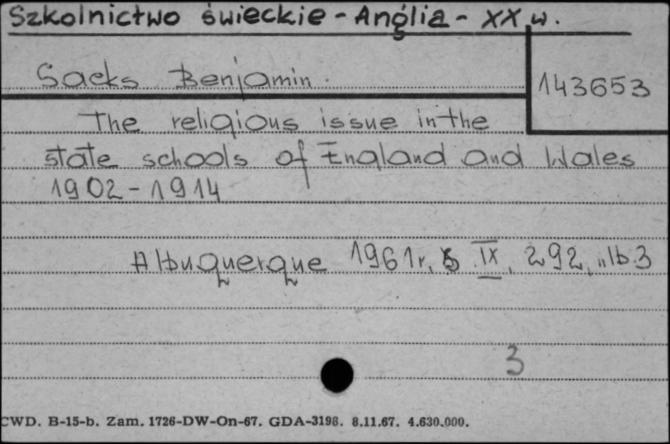 Szkolnictwo świeckie - Anglia - XX w.
Sacks Benjamin.
143653
The religious issue in the
state schools of England and Wales
1902 - 1914
Albuquerque 1961r, s IX, 292, nlb 3
3
CWD. B-15-b. Zam. 1726-DW-On-67. GDA-3198. 8.11.67. 4.630.000.